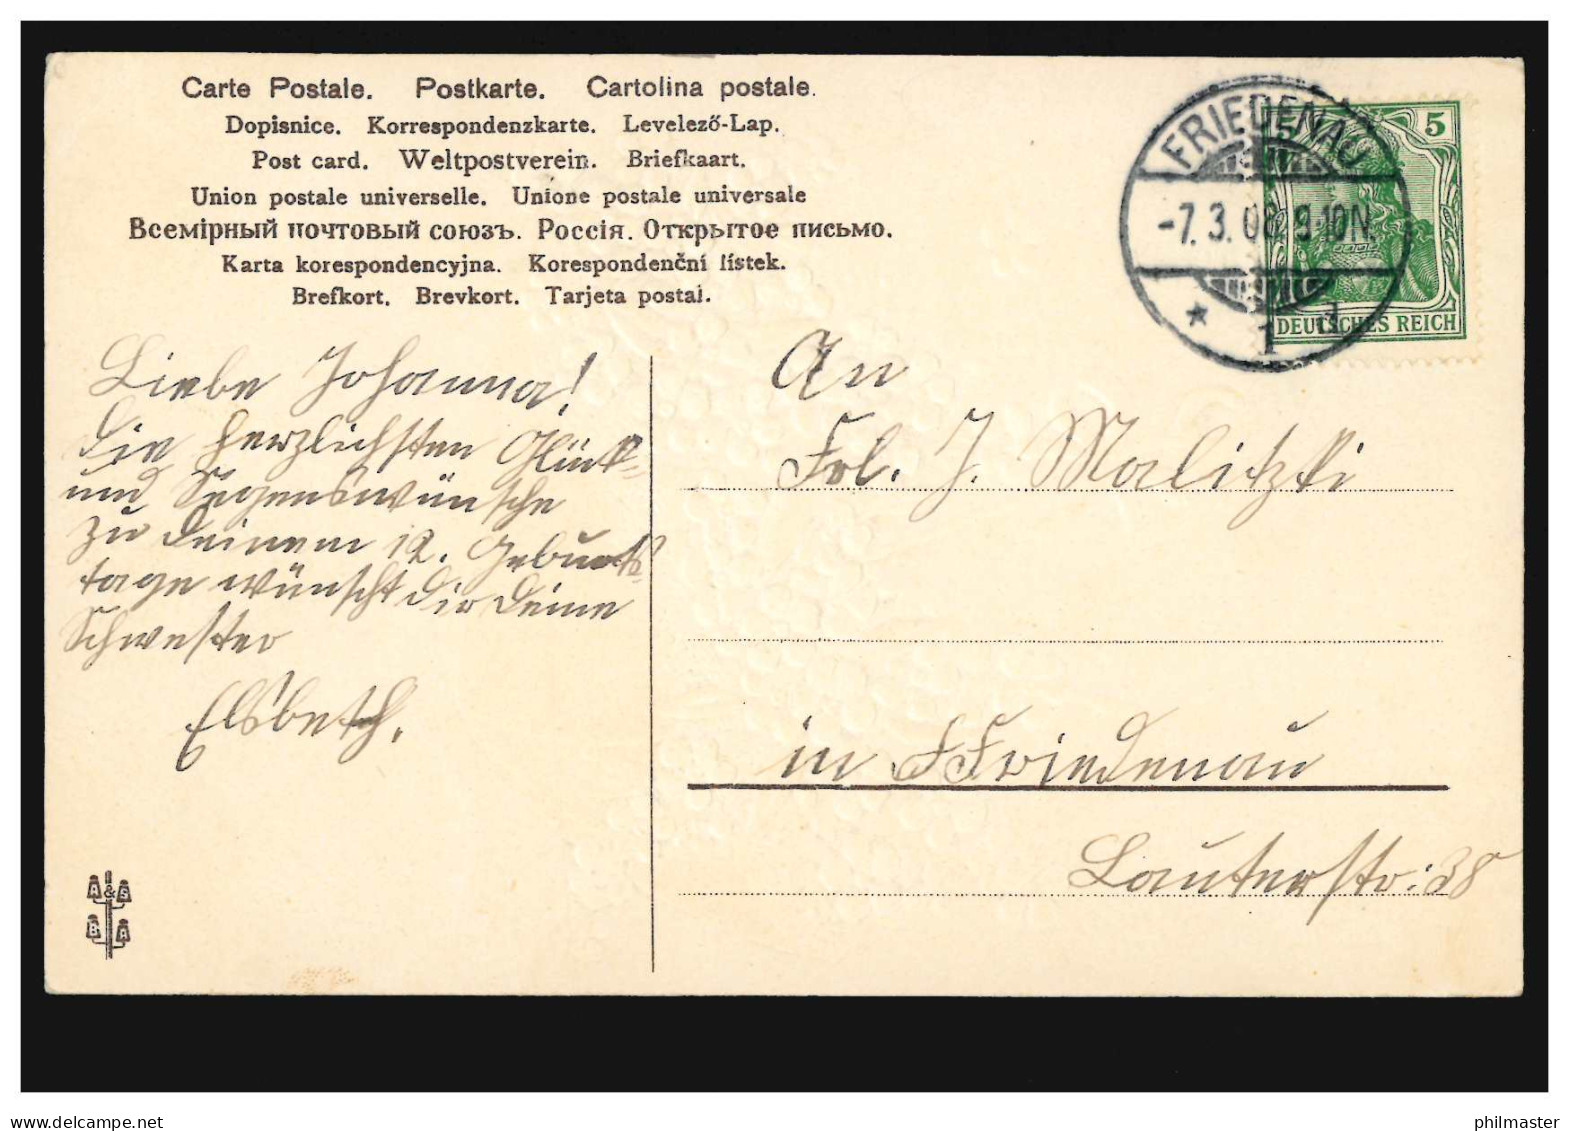 Carte Postale. Postkarte. Cartolina postale.
Dopisnice. Korrespondenzkarte. Levelező-Lap.
Post card. Weltpostverein. Briefkaart.
Union postale universelle. Unione postale universale
Всемірный почтовый союзъ. Россія. Открытое письмо.
Karta korespondencyjna. Korespondenční lístek.
Brefkort. Brevkort. Tarjeta postal.
FRIEDENAU
-7.3.08. 9-10N.
* 1 d
5 5
DEUTSCHES REICH
Liebe Johanna!
Die herzlichsten Glück-
und Segenswünsche
zu deinem 12. Geburts-
tage wünscht dir deine
Schwester
Elsbeth.
An
Frl. J. Malitzki
in Friedenau
Lauterstr: 38
A & S
B A
philmaster
www.delcampe.net